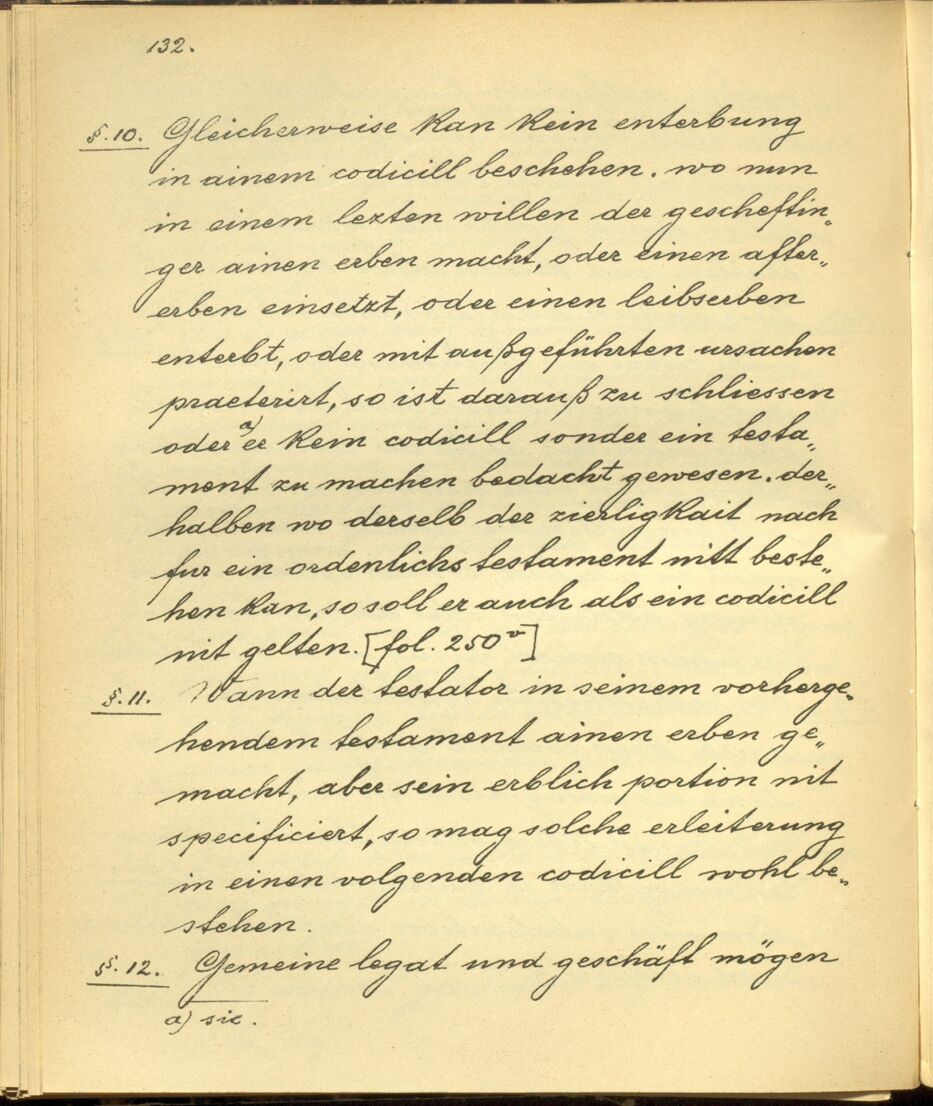 132.
§. 10. Gleicherweise kan kein enterbung
in ainem codicill beschehen. wo nun
in einem lezten willen der gescheftin„
ger ainen erben macht, oder einen after„
erben einsetzt, oder einen leibserben
enterbt, oder mit außgeführten ursachen
praeterirt, so ist darauß zu schliessen
oder a) er kein codicill sonder ein testa„
ment zu machen bedacht gewesen. der„
halben wo derselb der zierligkait nach
fur ein ordenlichs testament nitt beste„
hen kan, so soll er auch als ein codicill
nit gelten. [fol. 250v]
§. 11. Wann der testator in seinem vorherge„
hendem testament ainen erben ge„
macht, aber sein erblich portion nit
specificiert, so mag solche erleiterung
in einen volgenden codicill wohl be„
stehen.
§. 12. Gemeine legat und geschäft mögen
a) sic.